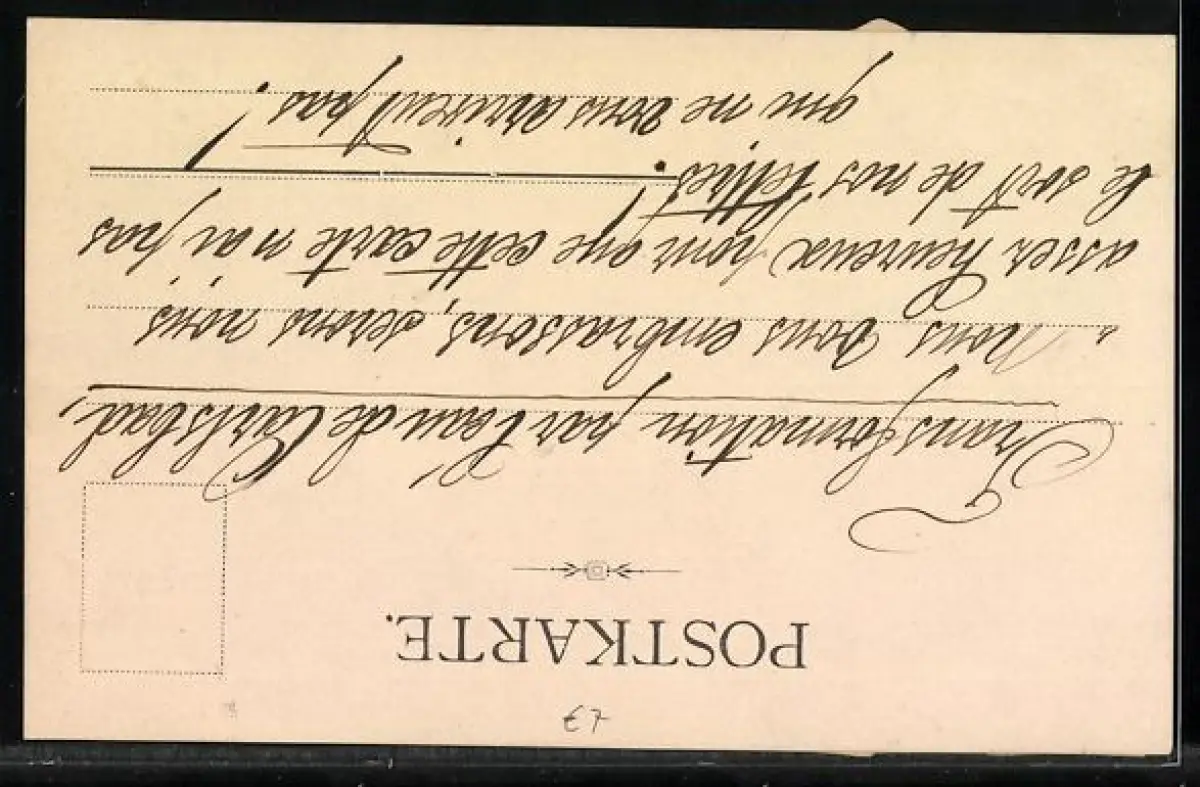 €7
POSTKARTE.
Transformation par l'eau de Carlsbad,
"Nous vous embrassons, serons nous
assez heureux pour que cette carte n'ai pas
le sort de nos lettres!
qui ne vous arrivent pas!